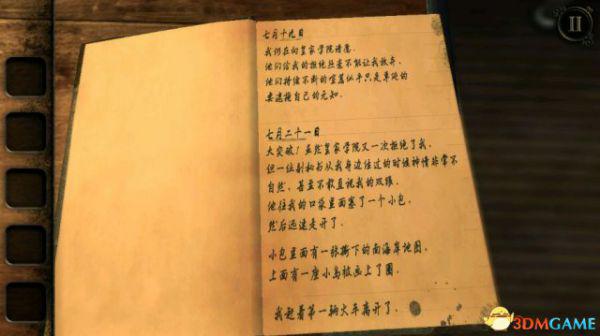 七月十九日
我仍在向皇家学院请愿。
他们给我的拒绝丝毫不能让我放弃。
他们持续不断的喧嚣似乎只是单纯的
要遮掩自己的无知。
七月二十一日
大突破！虽然皇家学院又一次拒绝了我，
但一位副秘书从我身边经过的时候神情非常不
自然，甚至不敢直视我的双眼。
他往我的口袋里面塞了一个小包，
然后迅速走开了。
小包里面有一张撕下的南海岸地图，
上面有一座小岛被画上了圈。
我赶着第一辆火车离开了。
3DMGAME